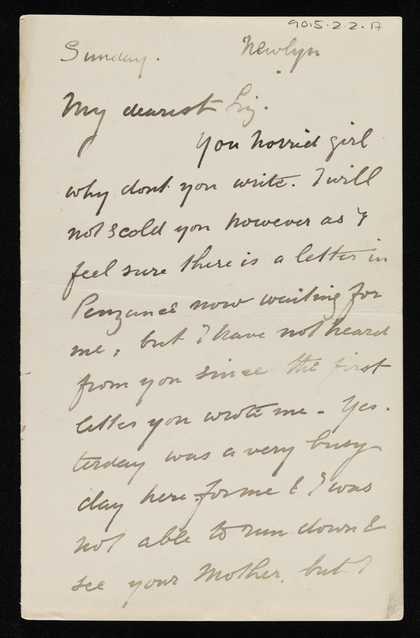 9015.2.2.17
Sunday. Newlyn
My dearest Liz.
You horrid girl
why dont you write. I will
not scold you however as I
feel sure there is a letter in
Penzance now waiting for
me, but I have not heard
from you since the first
letter you wrote me - Yes-
terday was a very busy
day here for me & I was
not able to run down &
see your Mother, but I